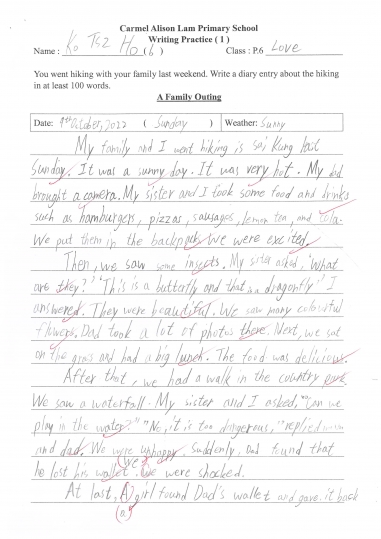 Carmel Alison Lam Primary School
Writing Practice ( 1 )
Name : Ko Tsz Ho (6) Class : P.6 Love
You went hiking with your family last weekend. Write a diary entry about the hiking
in at least 100 words.
A Family Outing
Date: 9th October, 2022 ( Sunday ) Weather: Sunny
My family and I went hiking is Sai Kung last
Sunday. It was a sunny day. It was very hot. My dad
brought a camera. My sister and I took some food and drinks
such as hamburgers, pizzas, sausages, lemon tea, and cola.
We put them in the backpack. We were excited.
Then, we saw some insects. My sister asked, "What
are they?" "This is a butterfly and that is a dragonfly" I
answered. They were beautiful. We saw many colourful
flowers. Dad took a lot of photos there. Next, we sat
on the grass and had a big lunch. The food was delicious.
After that, we had a walk in the country park.
We saw a waterfall. My sister and I asked, "Can we
play in the water?" "No, it is too dangerous," replied mum
and dad. We were unhappy. Suddenly, Dad found that
he lost his wallet. We were shocked.
We
At last, A girl found Dad's wallet and gave it back
(a)